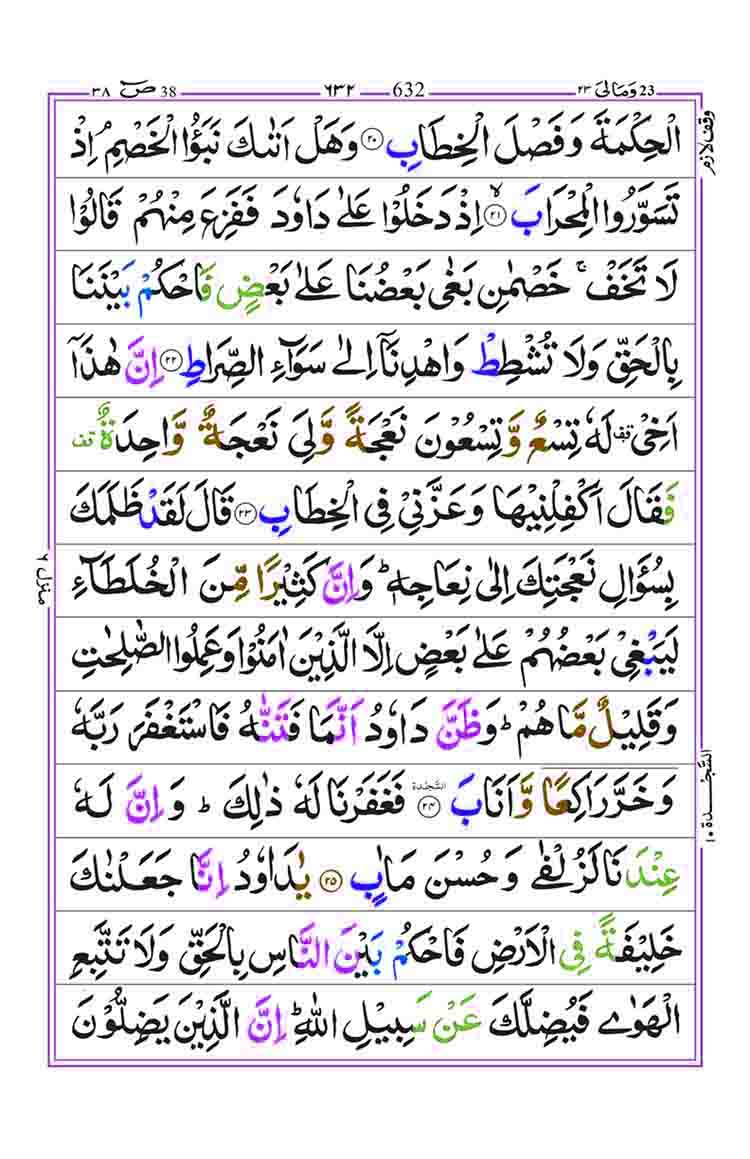 ٣٨ صٓ 38 ٦٣٢ 632 ٢٣ وَمَالِىَ 23
وقف لازم
الْحِكْمَةَ وَفَصْلَ الْخِطَابِ ﴿٢٠﴾ وَهَلْ اَتٰىكَ نَبَؤُا الْخَصْمِ ۘ اِذْ
تَسَوَّرُوا الْمِحْرَابَ ۙ﴿٢١﴾ اِذْ دَخَلُوْا عَلٰى دَاوٗدَ فَفَزِعَ مِنْهُمْ قَالُوْا
لَا تَخَفْ ۚ خَصْمٰنِ بَغٰى بَعْضُنَا عَلٰى بَعْضٍ فَاحْكُمْ بَيْنَنَا
بِالْحَقِّ وَلَا تُشْطِطْ وَاهْدِنَاۤ اِلٰى سَوَآءِ الصِّرَاطِ ﴿٢٢﴾ اِنَّ هٰذَاۤ
اَخِىْ قف لَهٗ تِسْعٌ وَّتِسْعُوْنَ نَعْجَةً وَّلِىَ نَعْجَةٌ وَّاحِدَةٌ قف
فَقَالَ اَكْفِلْنِيْهَا وَعَزَّنِىْ فِى الْخِطَابِ ﴿٢٣﴾ قَالَ لَقَدْ ظَلَمَكَ
بِسُؤَالِ نَعْجَتِكَ اِلٰى نِعَاجِهٖ ؕ وَاِنَّ كَثِيْرًا مِّنَ الْخُلَطَآءِ
لَيَبْغِىْ بَعْضُهُمْ عَلٰى بَعْضٍ اِلَّا الَّذِيْنَ اٰمَنُوْا وَعَمِلُوا الصّٰلِحٰتِ
وَقَلِيْلٌ مَّا هُمْ ؕ وَظَنَّ دَاوٗدُ اَنَّمَا فَتَنّٰهُ فَاسْتَغْفَرَ رَبَّهٗ
وَخَرَّ رَاكِعًا وَّاَنَابَ السَّجْدَة ﴿٢٤﴾ فَغَفَرْنَا لَهٗ ذٰلِكَ ؕ وَاِنَّ لَهٗ
عِنْدَنَا لَزُلْفٰى وَحُسْنَ مَاٰبٍ ﴿٢٥﴾ يٰدَاوٗدُ اِنَّا جَعَلْنٰكَ
خَلِيْفَةً فِى الْاَرْضِ فَاحْكُمْ بَيْنَ النَّاسِ بِالْحَقِّ وَلَا تَتَّبِعِ
الْهَوٰى فَيُضِلَّكَ عَنْ سَبِيْلِ اللّٰهِ ؕ اِنَّ الَّذِيْنَ يَضِلُّوْنَ
منزل ٦
السَّجْدَة ١٠